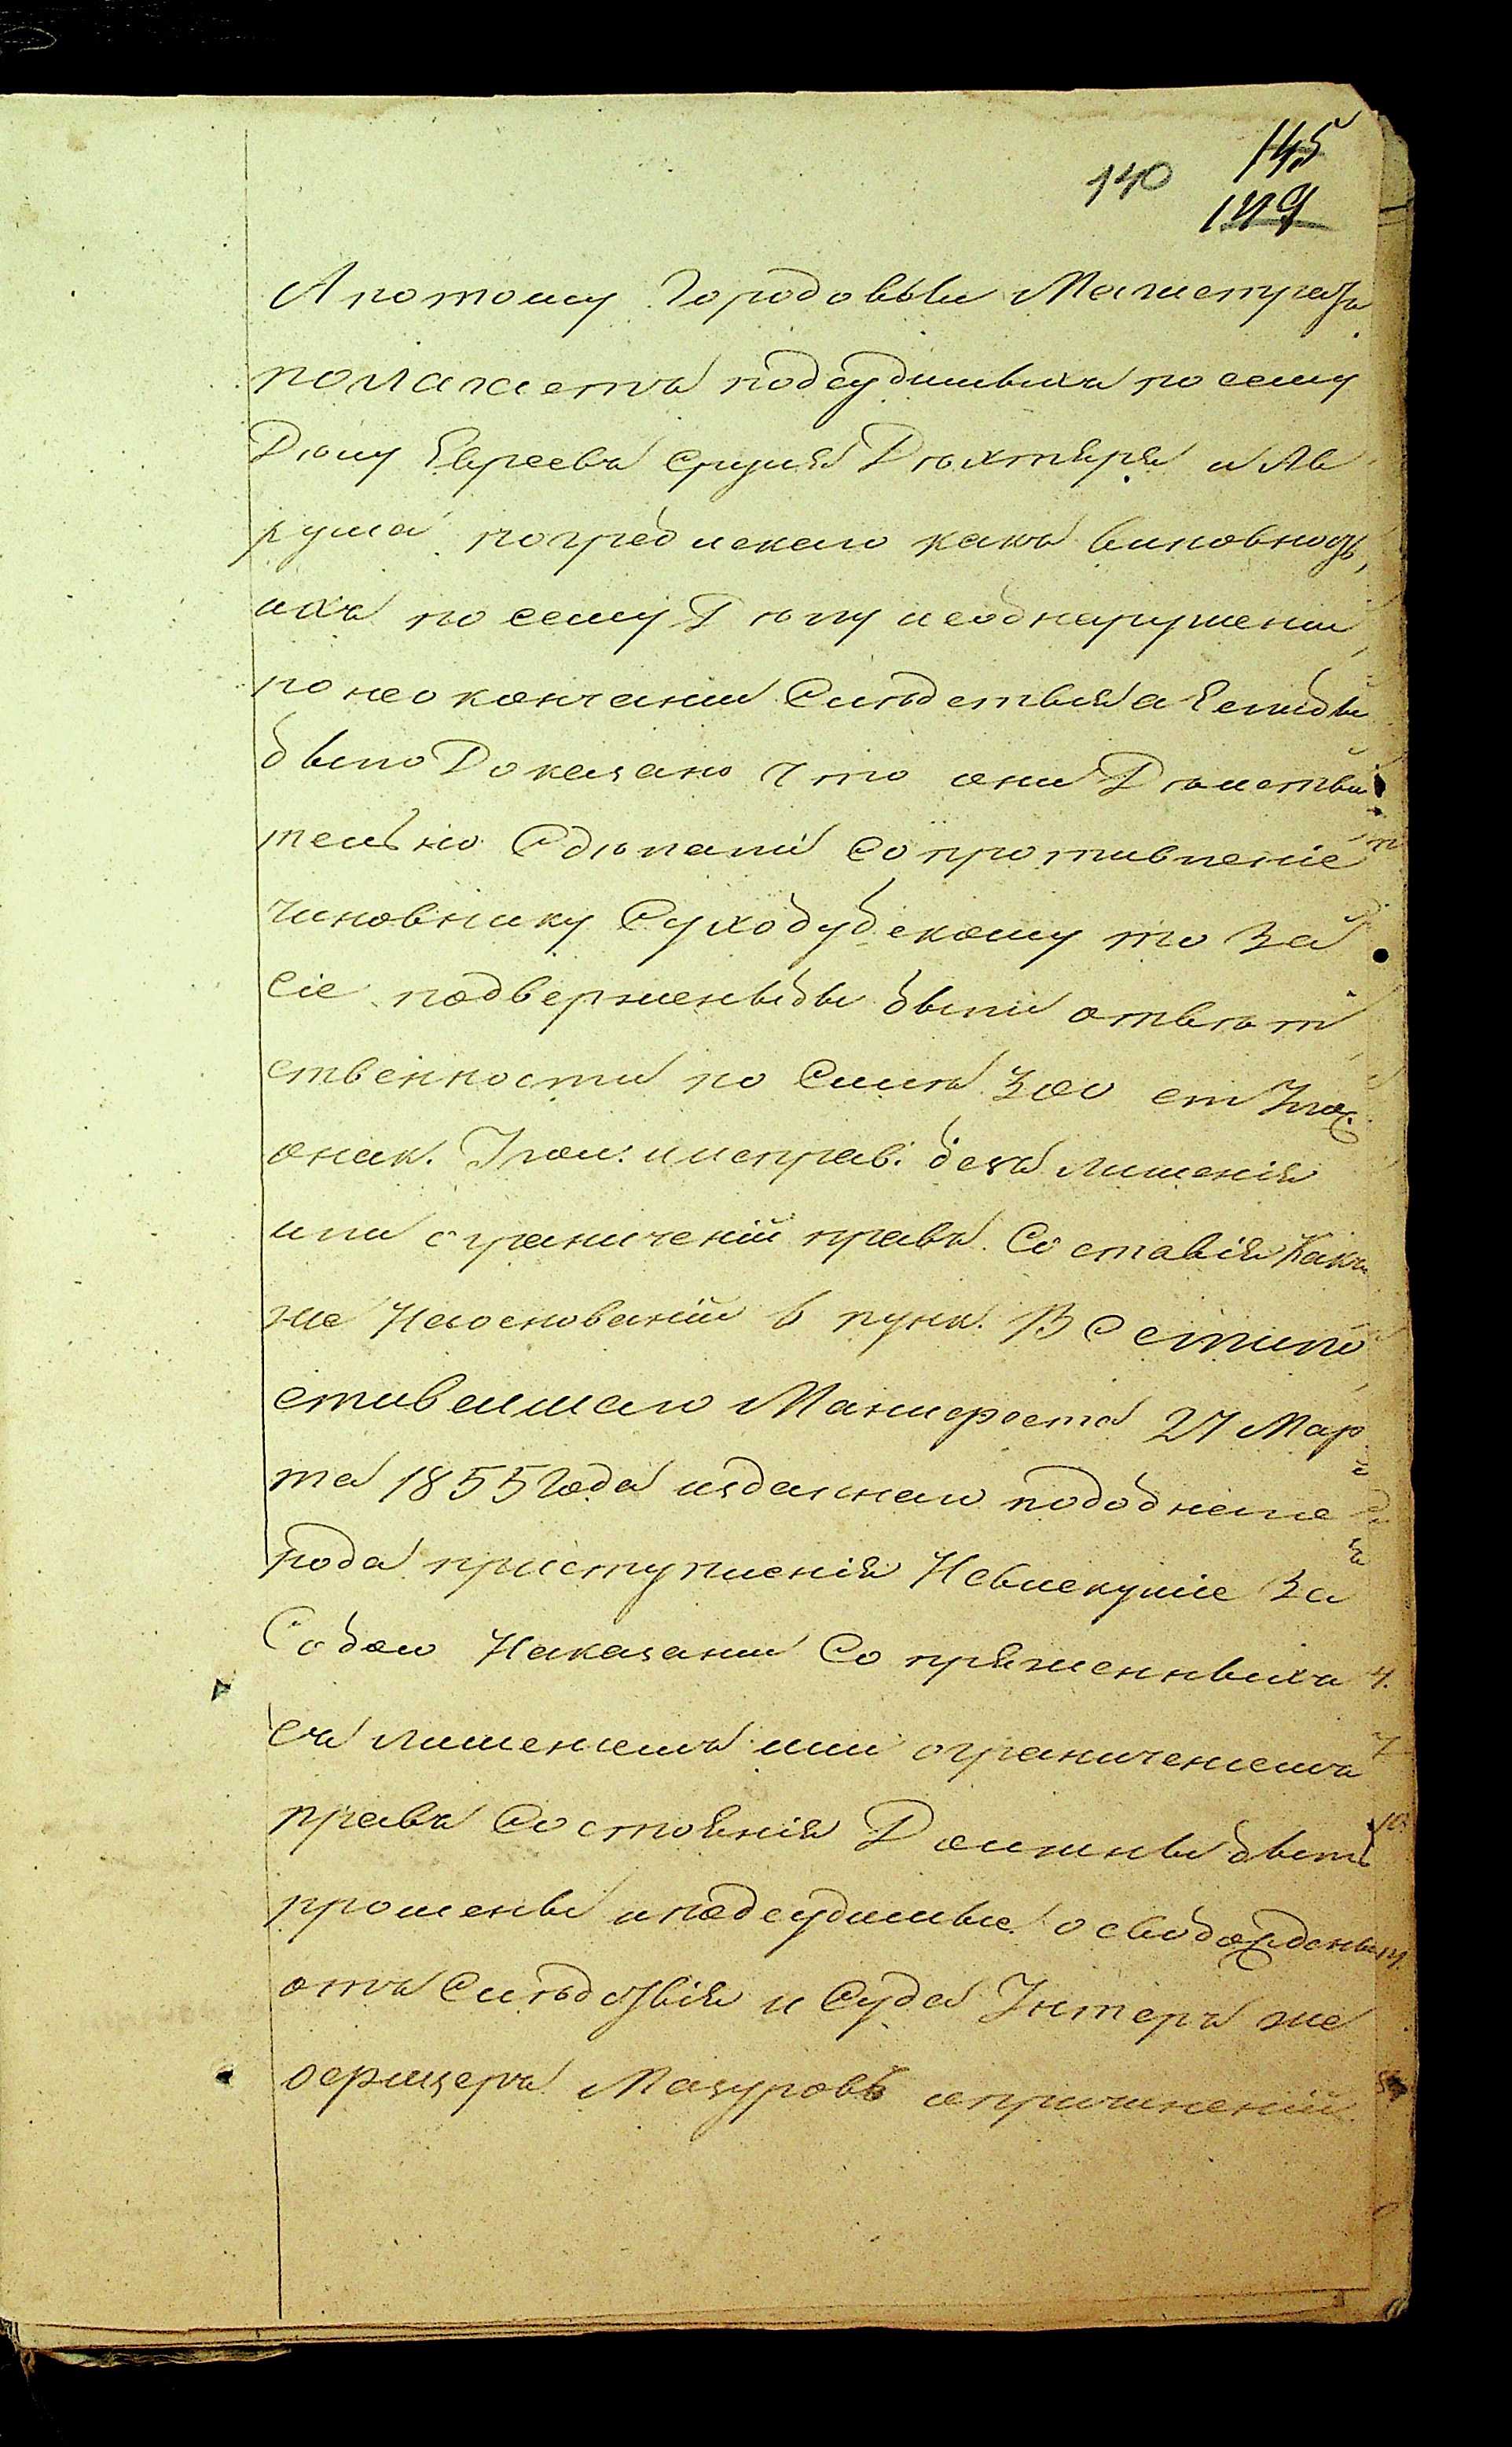 145
140
149
А потому Городовый Магистратъ
полагаетъ подсудимыхъ по сему
Дѣлу Евреевъ Сруля Дѣхтяря и Ав
рума какъ виновность
ихъ по сему Дѣлу необнаружени
по неокончании Слѣдствия а Еслибы
было Доказано Что они Дѣистви
тельно Сдѣлали сопротивленіе
чиновнику Суходубскому то За
Сіе подверженыбы были отвѣт
ственности по Силѣ 300 ст Улож.
онак. Угол. и исправ. безъ лишенія
или ограниченій правъ Состоянія Какъ
же Наоснованій в пунк. В Семило
стивеишаго Манифеста 27 Мар
та 1855 Года изданнаго
рода приступленія Невлекущіе За
Собою Наказании Сопряженныхъ
съ лишениемъ или ограничениемъ
правъ Состоянія Должны быть
прощены и подсудимые освобождены
отъ Слѣдствія и Суда Унтеръ же
офицеръ Мазуровъ